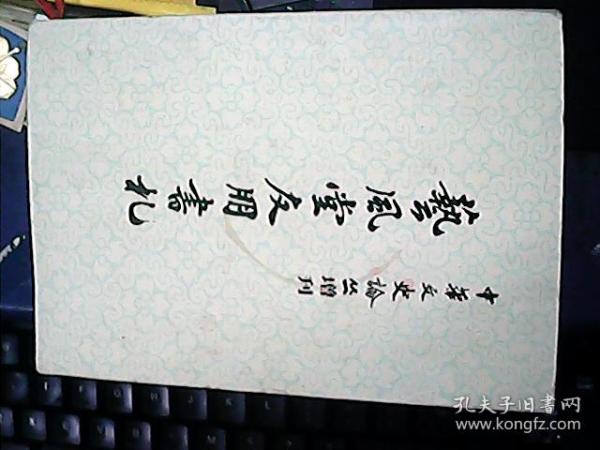 藝風堂友朋書札
中華文史論丛增刊
孔夫子旧書网
www.kongfz.com